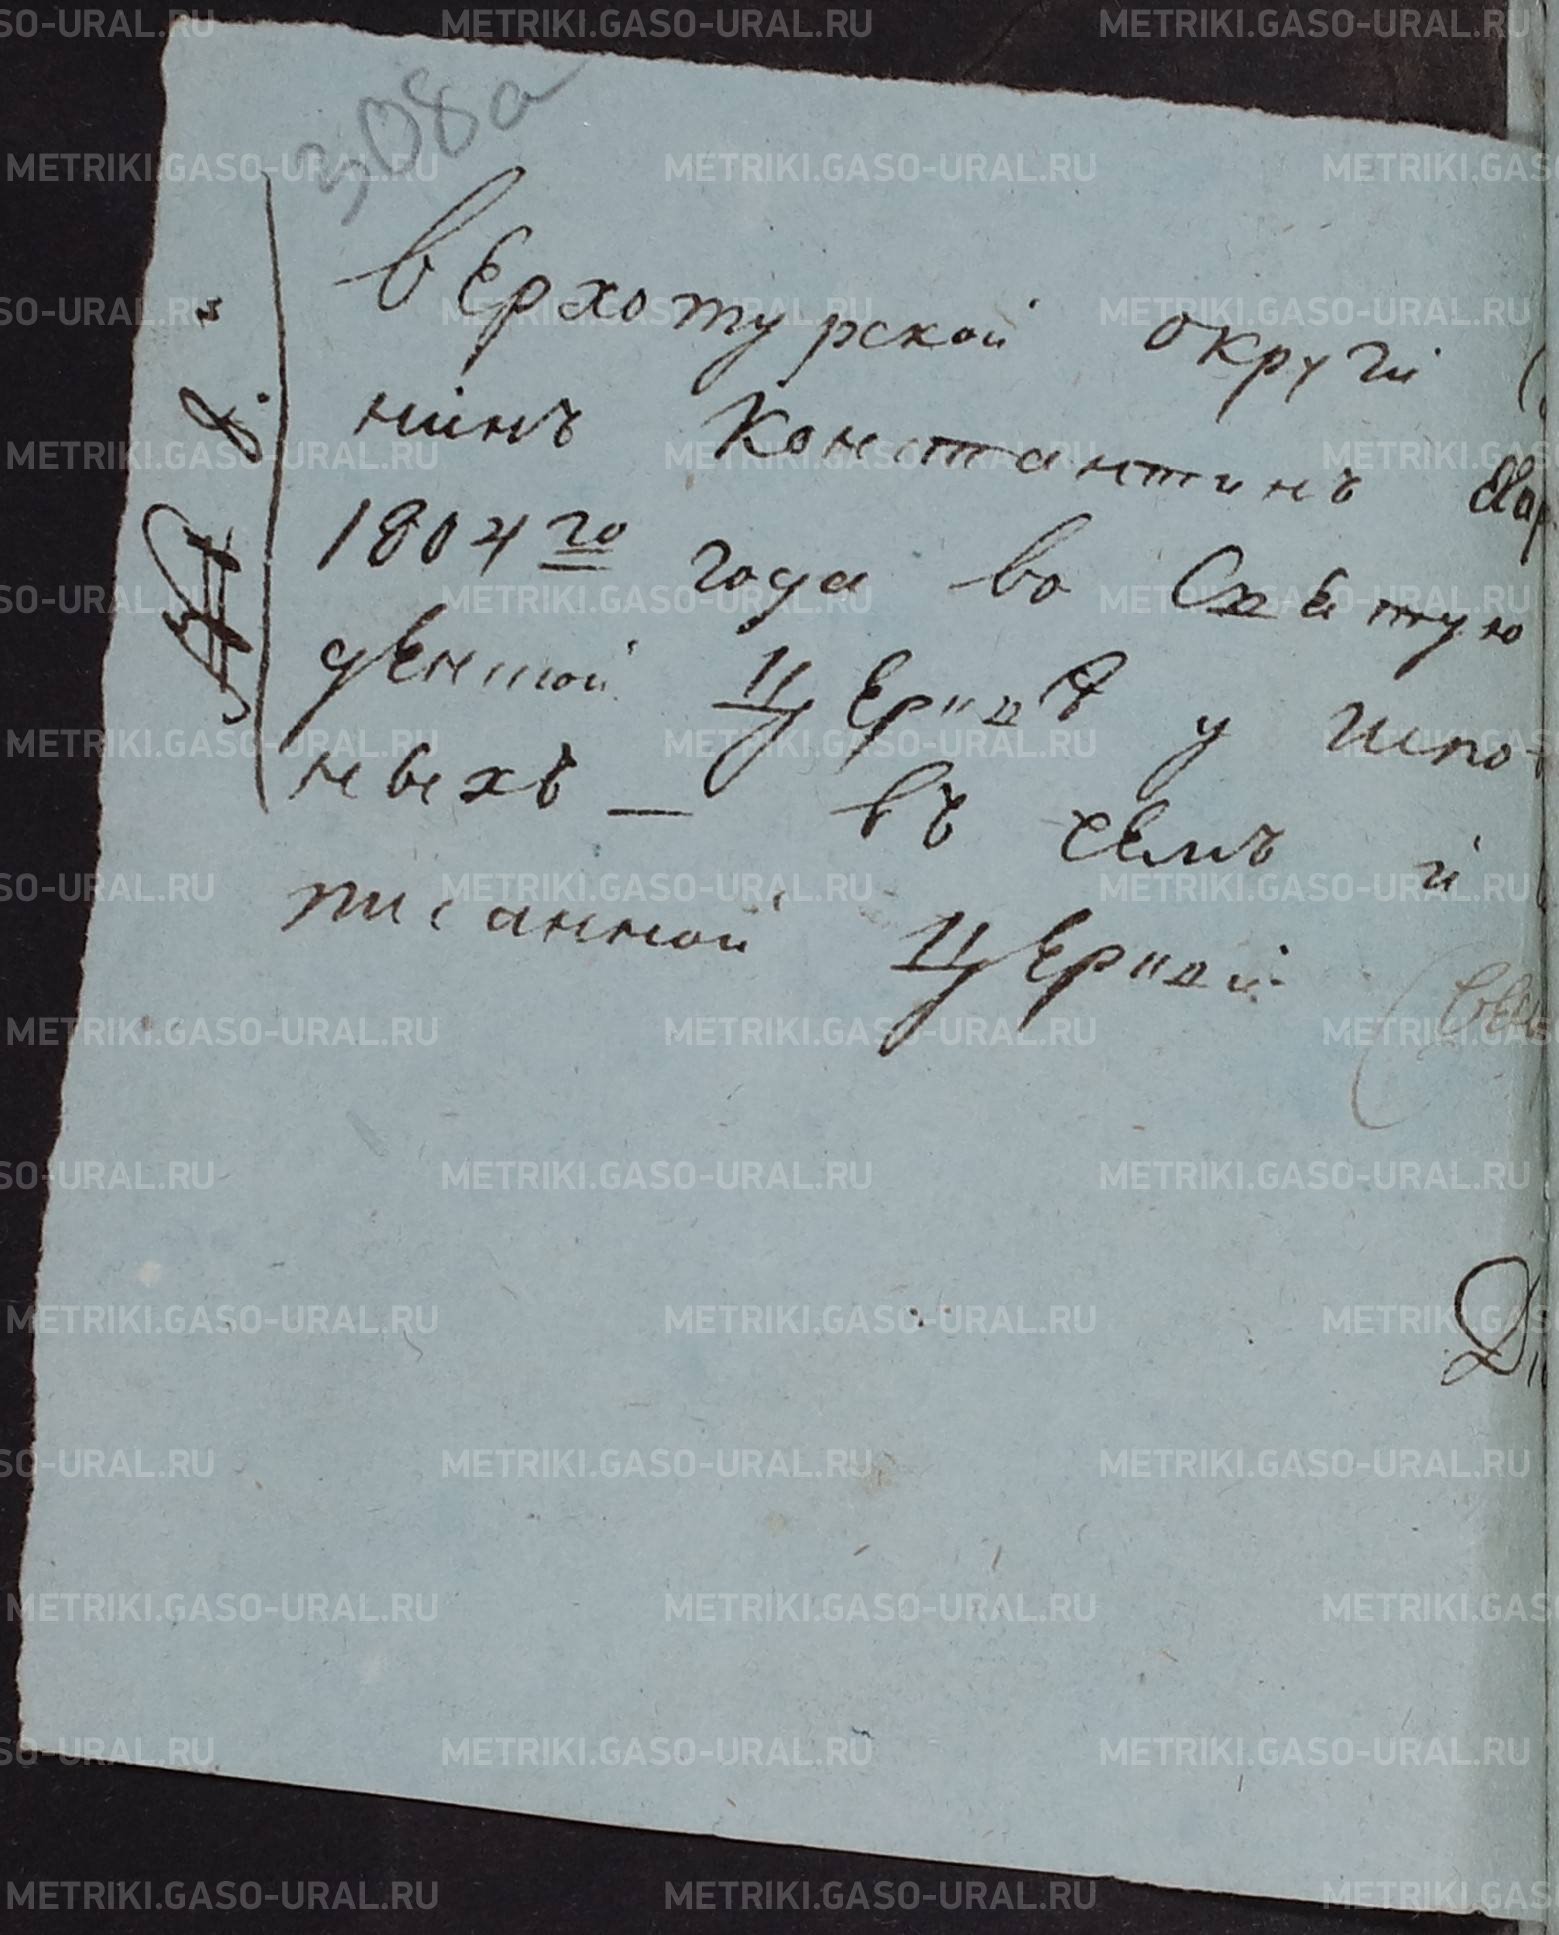 308а
Верхотурской округи
нинъ Константинъ Мар
1804го года во Святую
денной Церквѣ у испо-
ныхъ — въ чемъ и
писанной Церкви
METRIKI.GASO-URAL.RU